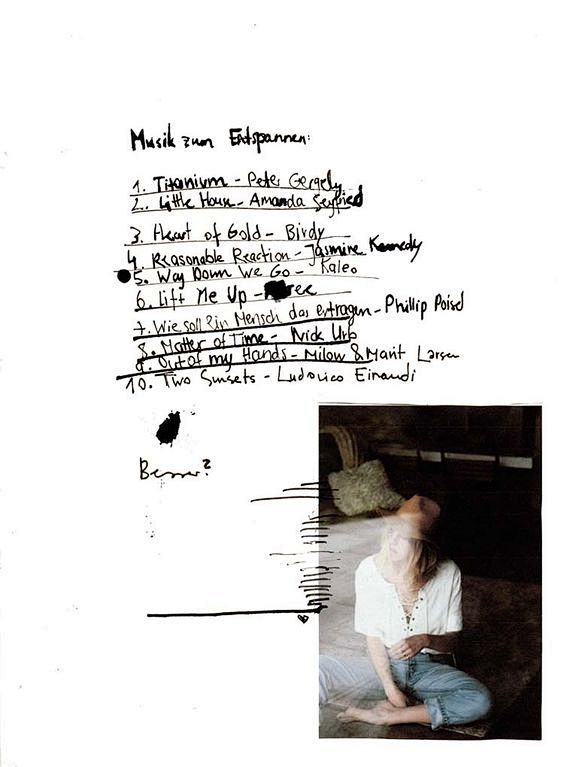 Musik zum Entspannen:
1. Titanium - Peter Gergely
2. Little House - Amanda Seyfried
3. Heart of Gold - Birdy
4. Reasonable Reaction - Jasmine Kennedy
5. Way Down We Go - Kaleo
6. Lift Me Up -
7. Wie soll ein Mensch das ertragen - Phillip Poisel
8. Matter of Time - Nick Urb
9. Out of my Hands - Milow & Marit Larsen
10. Two Sunsets - Ludovico Einaudi
Besser?